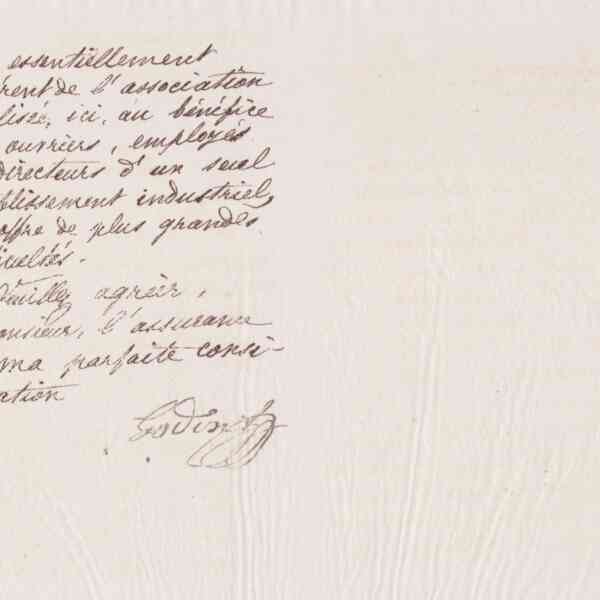 essentiellement
érent de l'association
lisée, ici, au bénéfice
ouvriers, employés
directeurs d'un seul
blissement industriel,
offre de plus grandes
icultés.
Veuillez agréer,
onsieur, l'assurance
ma parfaite consi-
ation
Godin